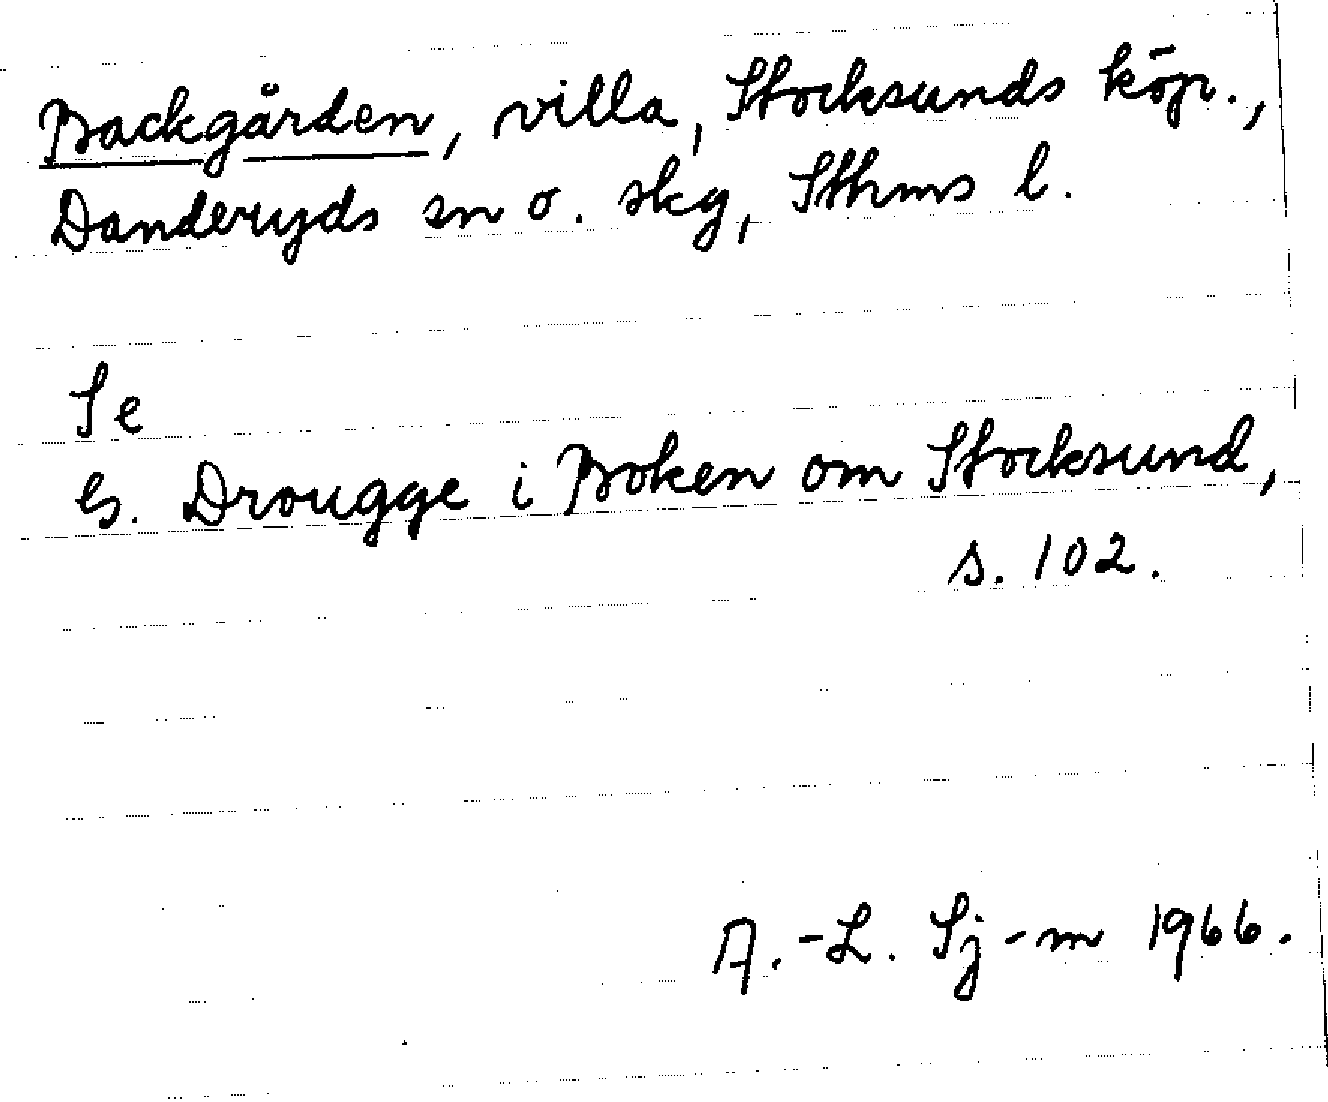 Backgården, villa, Stocksunds köp.,
Danderyds sn o. skg, Sthms l.
Se
G. Drougge i Boken om Stocksund,
s. 102.
A.-L. Sj-m 1966.